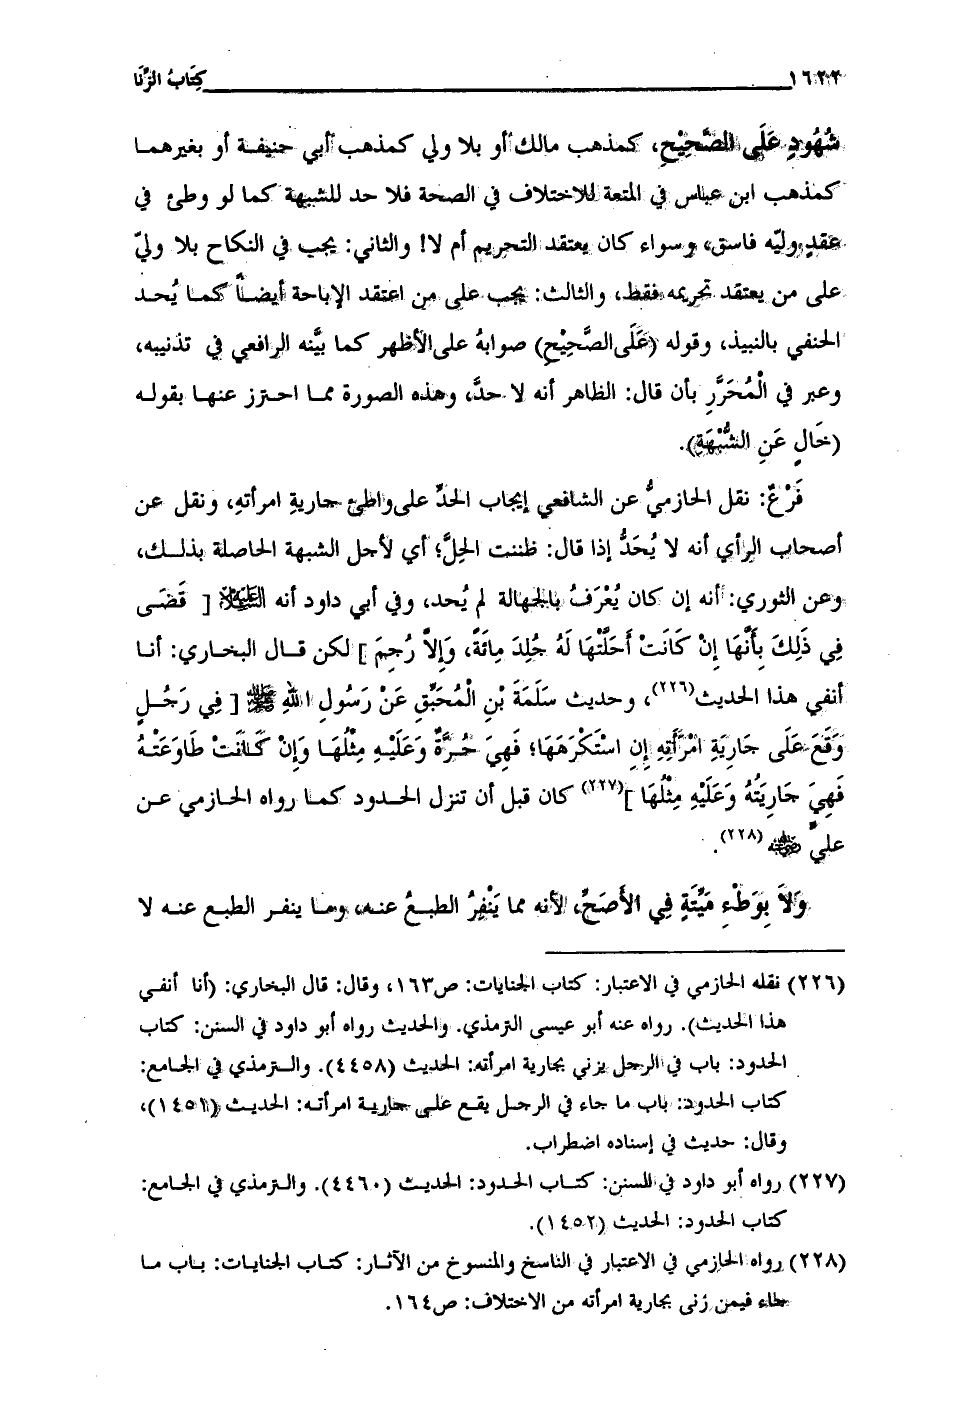 ١٦٢٢ كِتَابُ الزِّنَا
شُهُودٍ عَلَى الصَّحِيْحِ، كمذهب مالك أو بلا ولي كمذهب أبي حنيفة أو بغيرهما
كمذهب ابن عباس في المتعة للاختلاف في الصحة فلا حد للشبهة كما لو وطئ في
عقدٍ وليّه فاسق، وسواء كان يعتقد التحريم أم لا! والثاني: يجب في النكاح بلا وليّ
على من يعتقد تحريمه فقط، والثالث: يجب على من اعتقد الإباحة أيضاً كما يُحد
الحنفي بالنبيذ، وقوله (عَلَى الصَّحِيْحِ) صوابهُ على الأظهر كما بيَّنه الرافعي في تذنيبه،
وعبر في الْمُحَرَّرِ بأن قال: الظاهر أنه لا حدَّ، وهذه الصورة مما احترز عنها بقوله
(خَالٍ عَنِ الشُّبْهَةِ).
فَرْعٌ: نقل الحازميُّ عن الشافعي إيجاب الحدِّ على واطئ جارية امرأتهِ، ونقل عن
أصحاب الرأي أنه لا يُحَدُّ إذا قال: ظننت الحِلَّ؛ أي لأجل الشبهة الحاصلة بذلك،
وعن الثوري: أنه إن كان يُعْرَفُ بالجهالة لم يُحد، وفي أبي داود أنه عليه السلام [ قَضَى
فِي ذَلِكَ بِأَنَّهَا إِنْ كَانَتْ أَحَلَّتْهَا لَهُ جُلِدَ مِائَةً، وَإِلاَّ رُجِمَ ] لكن قال البخاري: أنا
أنفي هذا الحديث(٢٢٦)، وحديث سَلَمَةَ بْنِ الْمُحَبِّقِ عَنْ رَسُولِ اللهِ ﷺ [ فِي رَجُلٍ
وَقَعَ عَلَى جَارِيَةِ امْرَأَتِهِ إِنِ اسْتَكْرَهَهَا؛ فَهِيَ حُرَّةٌ وَعَلَيْهِ مِثْلُهَا وَإِنْ كَانَتْ طَاوَعَتْهُ
فَهِيَ جَارِيَتُهُ وَعَلَيْهِ مِثْلُهَا ](٢٢٧) كان قبل أن تنزل الحدود كما رواه الحازمي عن
عليٍّ رضي الله عنه(٢٢٨).
وَلاَ بِوَطْءِ مَيِّتَةٍ فِي الأَصَحِّ، لأنه مما يَنْفِرُ الطبعُ عنه، وما ينفر الطبع عنه لا
(٢٢٦) نقله الحازمي في الاعتبار: كتاب الجنايات: ص١٦٣، وقال: قال البخاري: (أنا أنفي
هذا الحديث). رواه عنه أبو عيسى الترمذي. والحديث رواه أبو داود في السنن: كتاب
الحدود: باب في الرجل يزني بجارية امرأته: الحديث (٤٤٥٨). والترمذي في الجامع:
كتاب الحدود: باب ما جاء في الرجل يقع على جارية امرأته: الحديث (١٤٥١)،
وقال: حديث في إسناده اضطراب.
(٢٢٧) رواه أبو داود في السنن: كتاب الحدود: الحديث (٤٤٦٠). والترمذي في الجامع:
كتاب الحدود: الحديث (١٤٥٢).
(٢٢٨) رواه الحازمي في الاعتبار في الناسخ والمنسوخ من الآثار: كتاب الجنايات: باب ما
جاء فيمن زنى بجارية امرأته من الاختلاف: ص١٦٤.